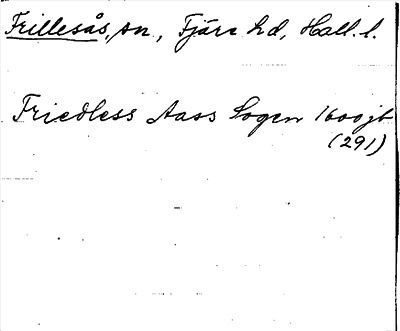 Frillesås, sn, Fjäre hd, Hall. l.
Friedless Aass Sogen 1600jb
(291)